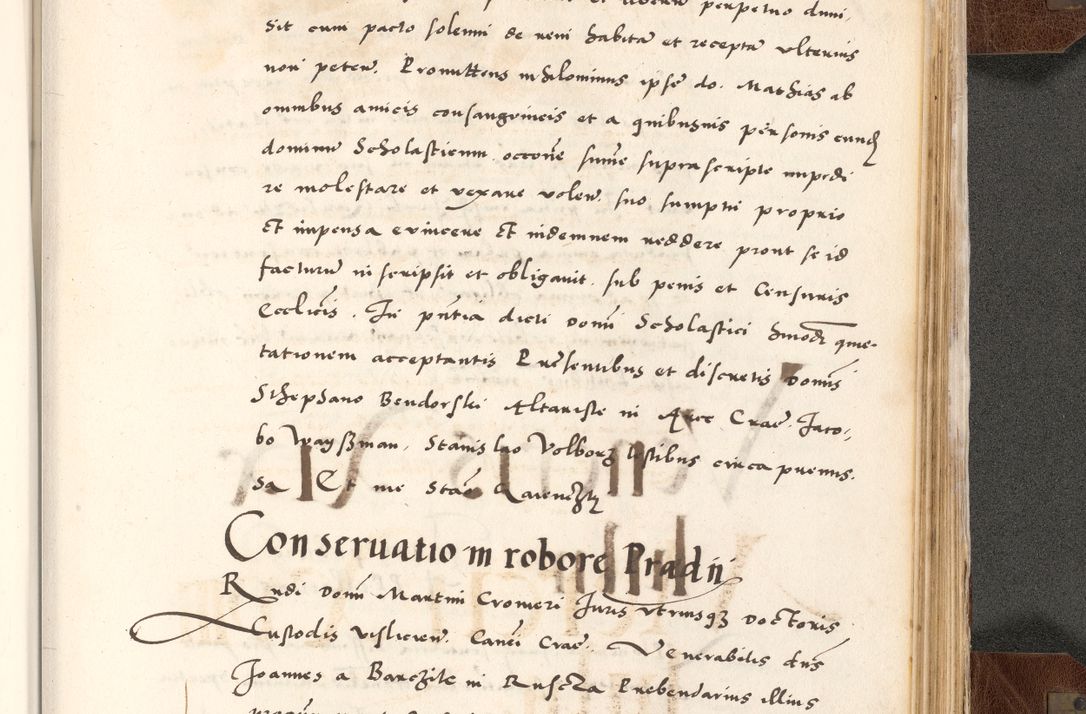 perpetuo duni,
Sit cum pacto solenni de veni habita et recepta ulterius
non peteñ. Promittens nihilominus ipse do. Mathias ab
omnibus amicis consanguineis et a quibusuis personis eund
dominu Scholasticum occone sume suprascripte impedi
re molestare et vexare volen. suo sumptu proprio
et impensa evincere et indemnem reddere prout se id
facturu in scripsit et obligauit. sub penis et Censuris
Ecclicis. In pntia dicti Domi Scholastici hmodi quie-
tationem acceptantis Presentibus et discretis Domis
Stephano Bendorski Altariste in Arce Crac. Jaco-
bo Wayszman, Stanislao Volborz testibus circa premis-
sa Et me Stao
Conseruatio in robore Pradii
Rndi Domi Martini Cromeri Juris utriusqz Doctoris
Custodis uislicien. Canci Crac. Venerabilis dns
Joannes a Barczite in Ruscza Prebendarius illius